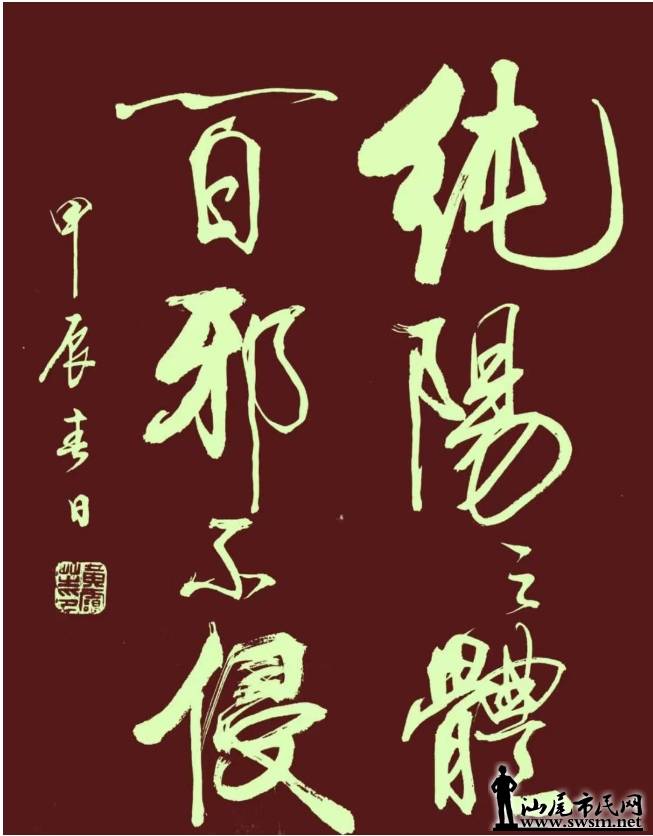 純陽之體
百邪不侵
甲辰春日
汕尾市民网
www.swsm.net